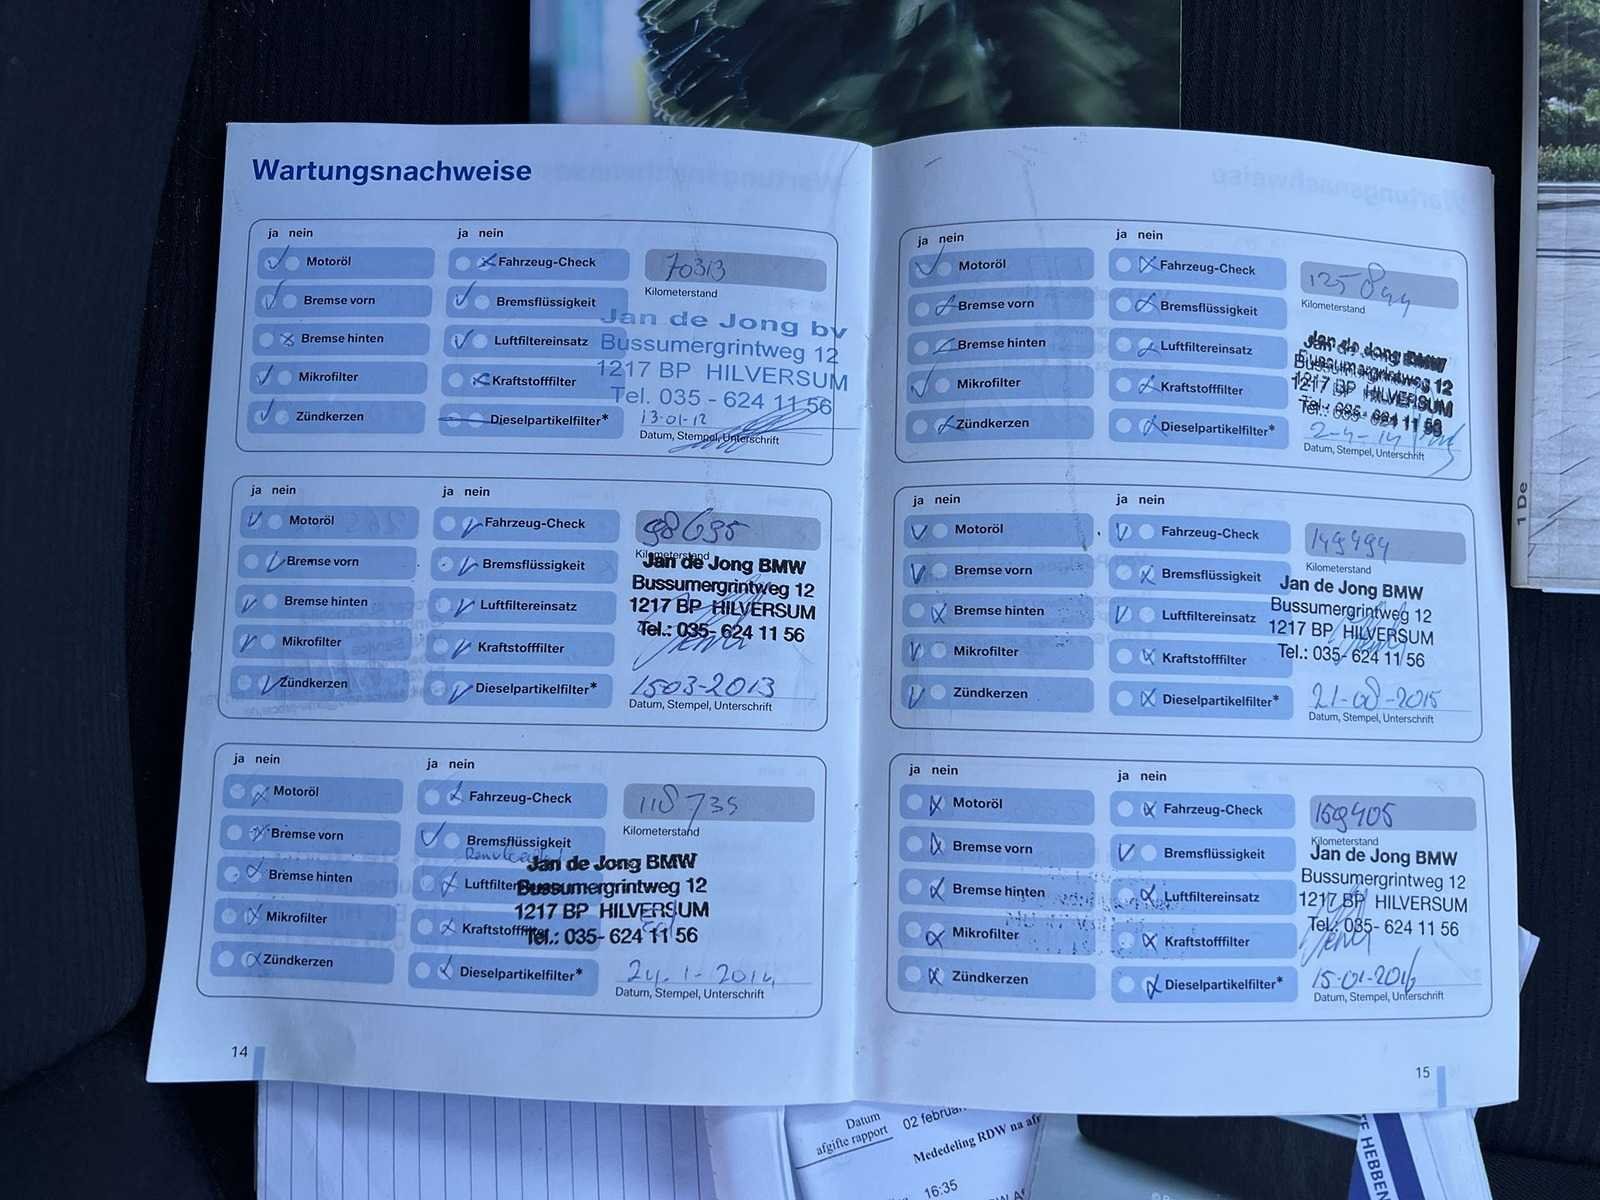 Wartungsnachweise
ja nein
ja nein
Motoröl
Fahrzeug-Check
70313
Kilometerstand
Bremse vorn
Bremsflüssigkeit
Bremse hinten
Luftfiltereinsatz
Mikrofilter
Kraftstofffilter
Zündkerzen
Dieselpartikelfilter*
Jan de Jong bv
Bussumergrintweg 12
1217 BP HILVERSUM
Tel. 035 - 624 11 56
13-01-12
Datum, Stempel, Unterschrift
ja nein
ja nein
Motoröl
Fahrzeug-Check
98695
Kilometerstand
Bremse vorn
Bremsflüssigkeit
Bremse hinten
Luftfiltereinsatz
Mikrofilter
Kraftstofffilter
Zündkerzen
Dieselpartikelfilter*
Jan de Jong BMW
Bussumergrintweg 12
1217 BP HILVERSUM
Tel.: 035- 624 11 56
15-03-2013
Datum, Stempel, Unterschrift
ja nein
ja nein
Motoröl
Fahrzeug-Check
118735
Kilometerstand
Bremse vorn
Bremsflüssigkeit
Bremse hinten
Mikrofilter
Zündkerzen
Dieselpartikelfilter*
Jan de Jong BMW
Bussumergrintweg 12
1217 BP HILVERSUM
Tel.: 035- 624 11 56
24-1-2014
Datum, Stempel, Unterschrift
14
ja nein
ja nein
Motoröl
Fahrzeug-Check
125844
Kilometerstand
Bremse vorn
Bremsflüssigkeit
Bremse hinten
Luftfiltereinsatz
Mikrofilter
Kraftstofffilter
Zündkerzen
Dieselpartikelfilter*
Jan de Jong BMW
Bussumergrintweg 12
1217 BP HILVERSUM
Tel.: 035- 624 11 56
2-4-14
Datum, Stempel, Unterschrift
ja nein
ja nein
Motoröl
Fahrzeug-Check
149494
Kilometerstand
Bremse vorn
Bremsflüssigkeit
Bremse hinten
Luftfiltereinsatz
Mikrofilter
Kraftstofffilter
Zündkerzen
Dieselpartikelfilter*
Jan de Jong BMW
Bussumergrintweg 12
1217 BP HILVERSUM
Tel.: 035- 624 11 56
21-08-2015
Datum, Stempel, Unterschrift
ja nein
ja nein
Motoröl
Fahrzeug-Check
159405
Kilometerstand
Bremse vorn
Bremsflüssigkeit
Bremse hinten
Luftfiltereinsatz
Mikrofilter
Kraftstofffilter
Zündkerzen
Dieselpartikelfilter*
Jan de Jong BMW
Bussumergrintweg 12
1217 BP HILVERSUM
Tel.: 035- 624 11 56
15-01-2016
Datum, Stempel, Unterschrift
15
1 De
Datum
afgifte rapport
02
Mededeling RDW na
16:35
HEBBEN